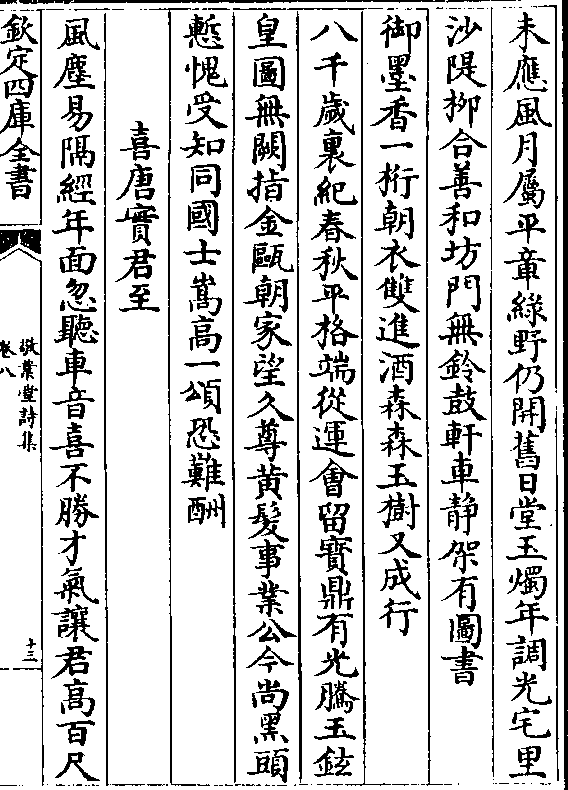 未應風月屬平章綠野仍開舊日堂玉燭年調光宅里
沙隄栁合善和坊門無鈴鼓軒車靜架有圖書
御墨香一桁朝衣雙進酒森森玉樹又成行
八千歲裏紀春秋平格端從運會留寳鼎有光騰玉鉉
皇圖無闕指金甌朝家望久尊黄髪事業公今尚黑頭
慙愧受知同國士嵩高一頌恐難酬
喜唐實君至
風塵易隔經年面忽聽車音喜不勝才氣讓君高百尺
欽定四庫全書
敬業堂詩集
卷八
十三